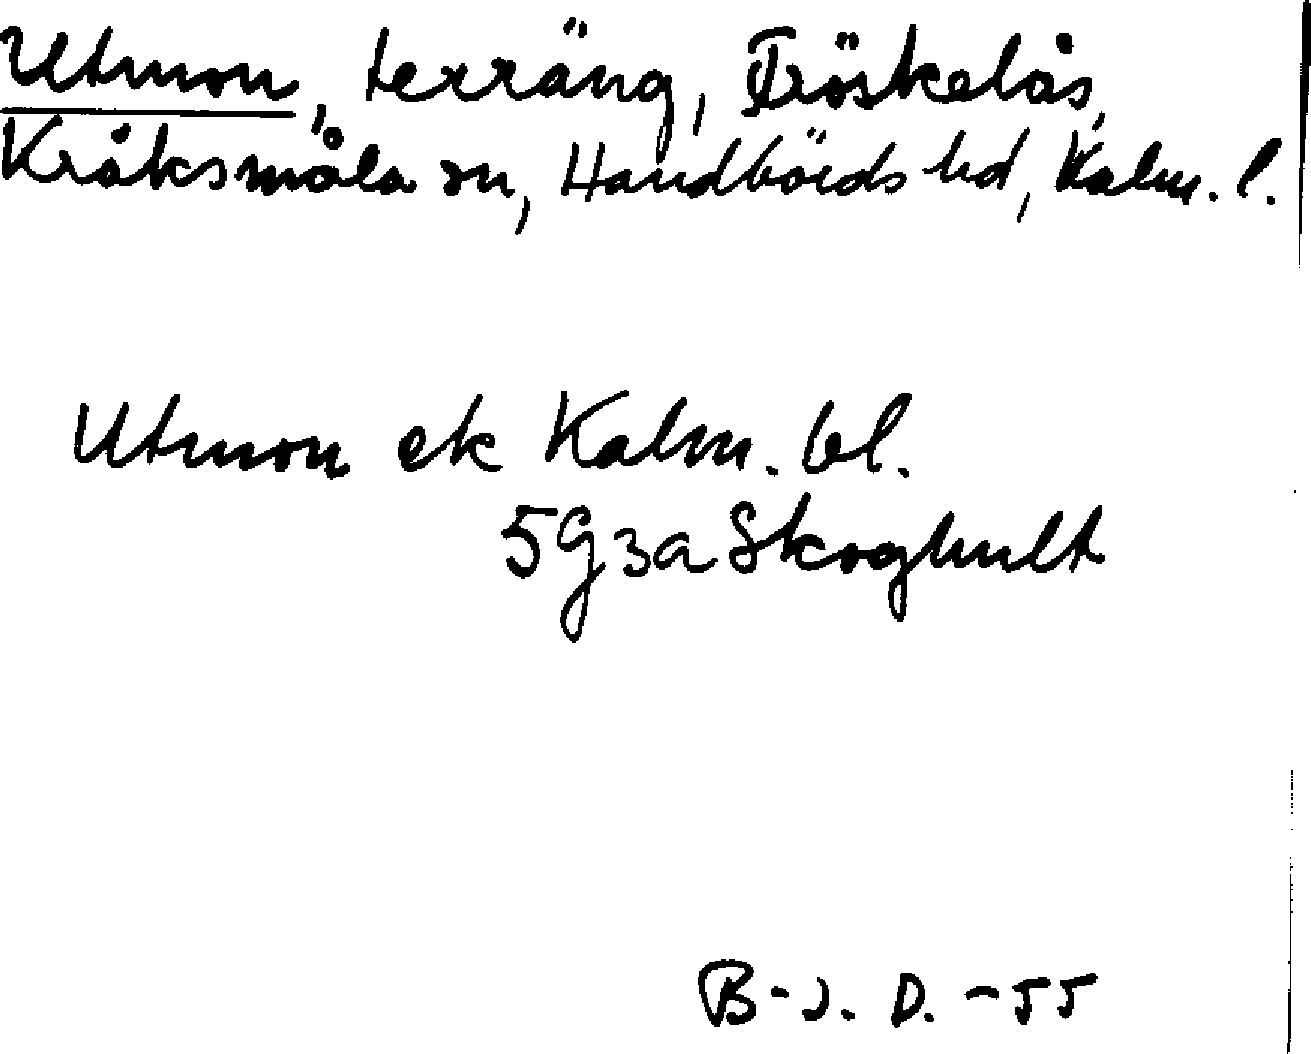 Utmon, terräng, Tröskelås,
Kråksmåla sn, Handbörds hd, Kalm. l.
Utmon ek Kalm. bl.
5G3a Skoghult
B-J. D. -55